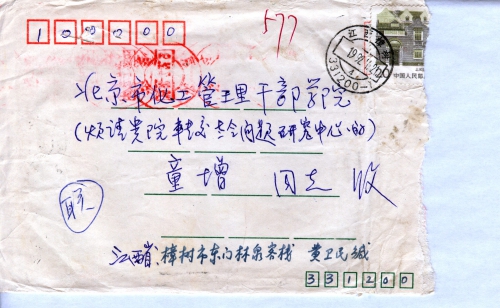 102200
577
江西樟树
331200
20
中国人民邮政
北京市化工管理干部学院
(烦请贵院转交老令问题研究中心的)
童增 同志 收
江西省樟树市东门林泉客栈 黄卫民缄
331200